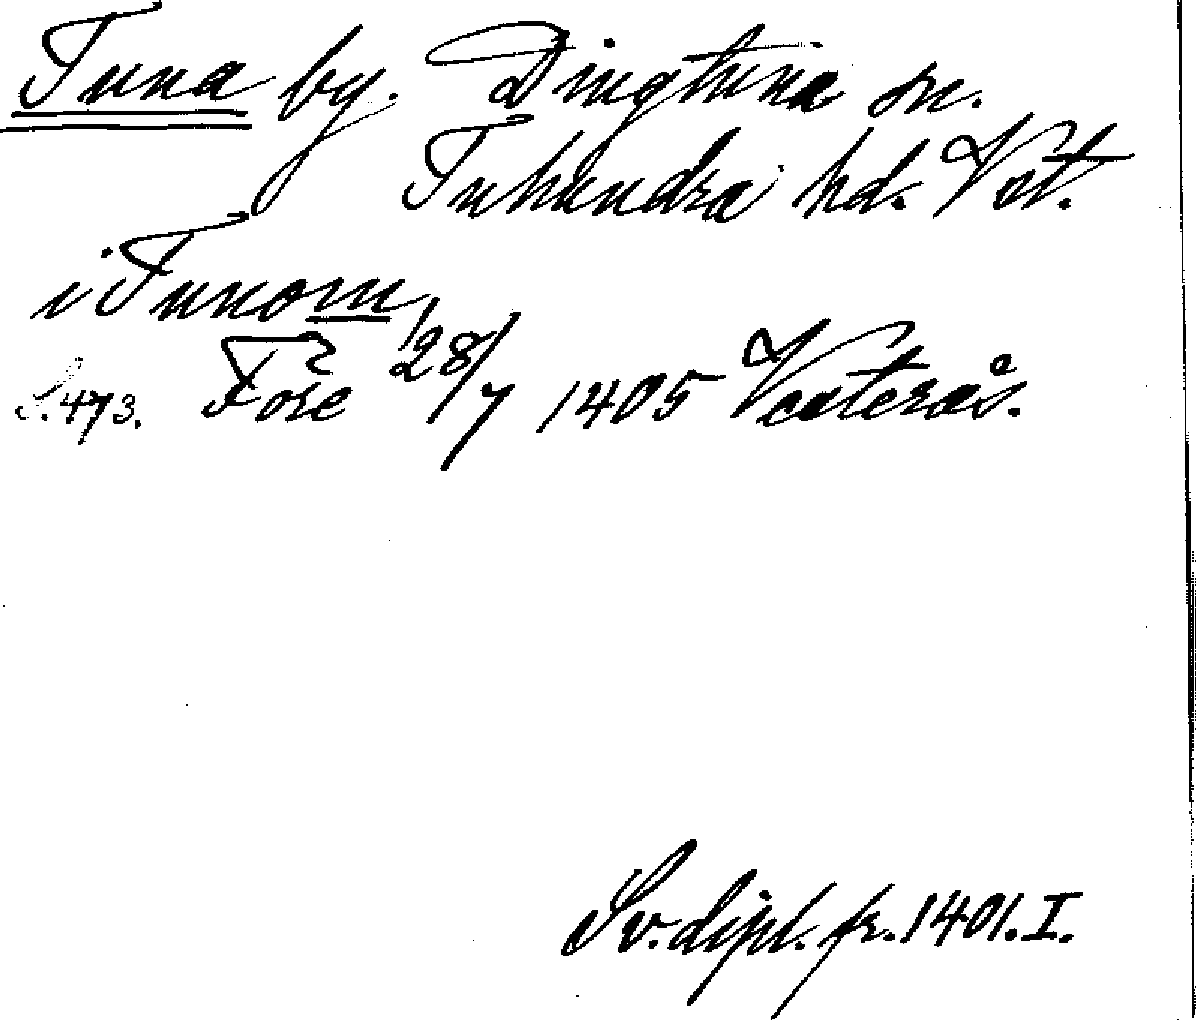 Tuna by. Dingtuna sn.
Tuhundra hd. Vst.
i Tunom
S. 473. Före 28/7 1405 Västerås.
Sv. dipl. fr. 1401. I.